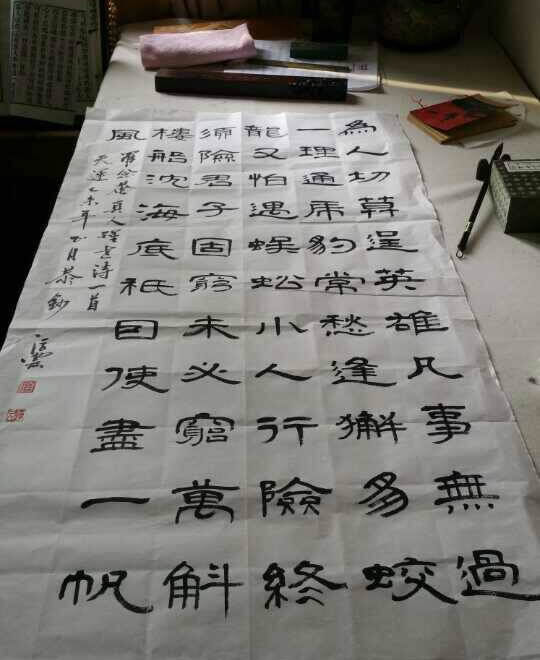 為人切莫逞英雄凡事無過
一理通虎豹常愁逢獬豸蛟
龍又怕遇蜈蚣小人行險終
須險君子固窮未必窮萬斛
樓船沈海底祇因使盡一帆
風
羅念菴真人醒世詩一首
天運乙未年月恭鈔